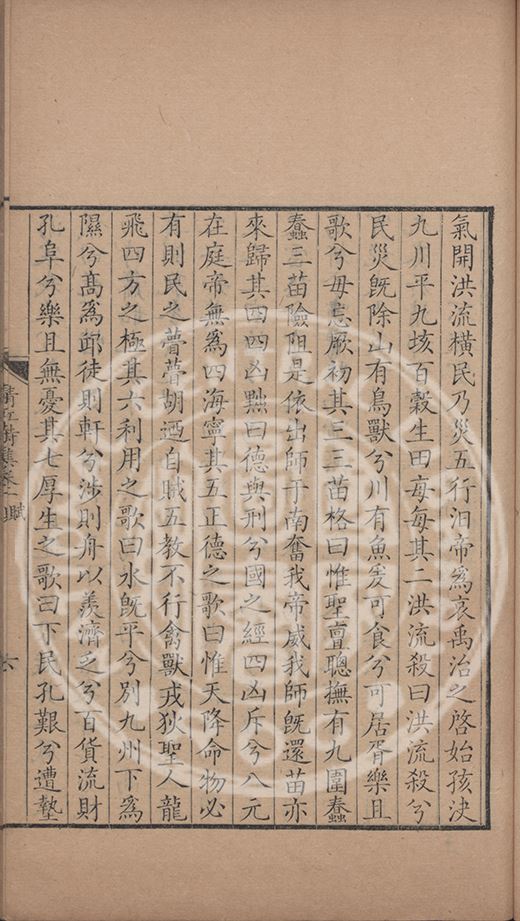 氣開洪流橫民乃災五行汩帝爲哀禹治之啓始孩決
九川平九垓百糓生田每每其二洪流殺曰洪流殺兮
民災旣除山有鳥獸兮川有魚爰可食兮可居胥樂且
歌兮毋忘厥初其三三苗格曰惟聖亶聰撫有九圍蠢
蠢三苗險阻是依出師于南奮我帝威我師旣還苗亦
來歸其四四凶黜曰德與刑兮國之經四凶斥兮八元
在庭帝無爲四海寧其五正德之歌曰惟天降命物必
有則民之瞢瞢胡迺自賊五教不行禽獸戎狄聖人龍
飛四方之極其六利用之歌曰水旣平兮別九州下爲
隰兮髙爲邱徒則軒兮涉則舟以羨濟之兮百貨流財
孔阜兮樂且無憂其七厚生之歌曰下民孔艱兮遭墊
清江詩集卷一 賦 六